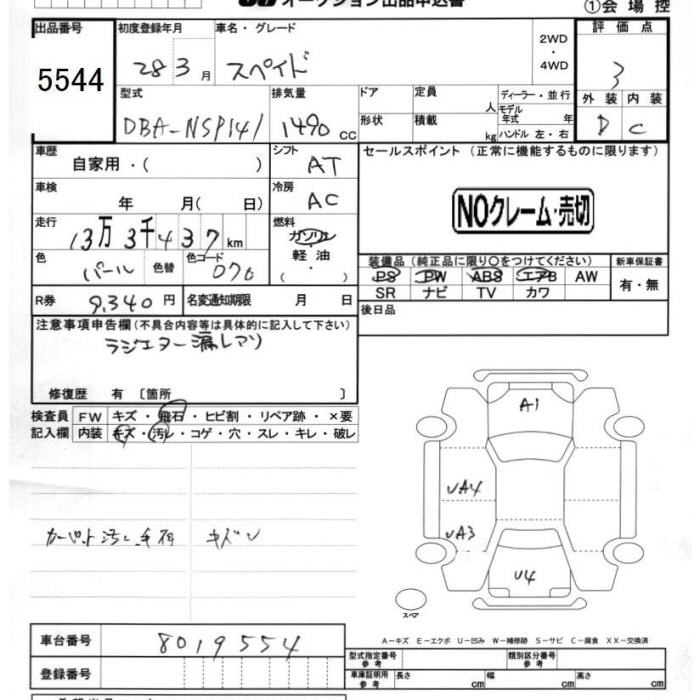 オークション出品申込書
①会場控
出品番号 初度登録年月 車名・グレード 2WD・4WD 評価点
5544 28 3月 スペイド 3
型式 排気量 ドア 定員 人 ディーラー・並行 外装 内装
DBA-NSP141 1490 cc 形状 積載 kg モデル年式 年 ハンドル 左・右 D C
車歴 自家用・( ) シフト AT セールスポイント (正常に機能するものに限ります)
車検 年 月( 日) 冷房 AC
NOクレーム・売切
走行 13万3千437km 燃料 ガソリン
軽油・( )
色 パール 色替 色コード 070
装備品(純正品に限り○をつけてください) 新車保証書
PS PW ABS エアB AW 有・無
SR ナビ TV カワ
R券 9,340円 名変通知期限 月 日 後日品
注意事項申告欄(不具合内容等は具体的に記入して下さい)
ラジエター漏レアリ
修復歴 有 〔箇所 〕
検査員記入欄 FW キズ・飛石・ヒビ割・リペア跡・×要
内装 キズ・汚レ・コゲ・穴・スレ・キレ・破レ
A1
UA4
UA3
U4
カーペット汚レ
キズ
スペア
A-キズ E-エクボ U-凹み W-補修跡 S-サビ C-腐食 XX-交換済
車台番号 8019554
型式指定番号 参考 類別区分番号 参考
登録番号 車庫証明用 参考 長さ cm 幅 cm 高さ cm